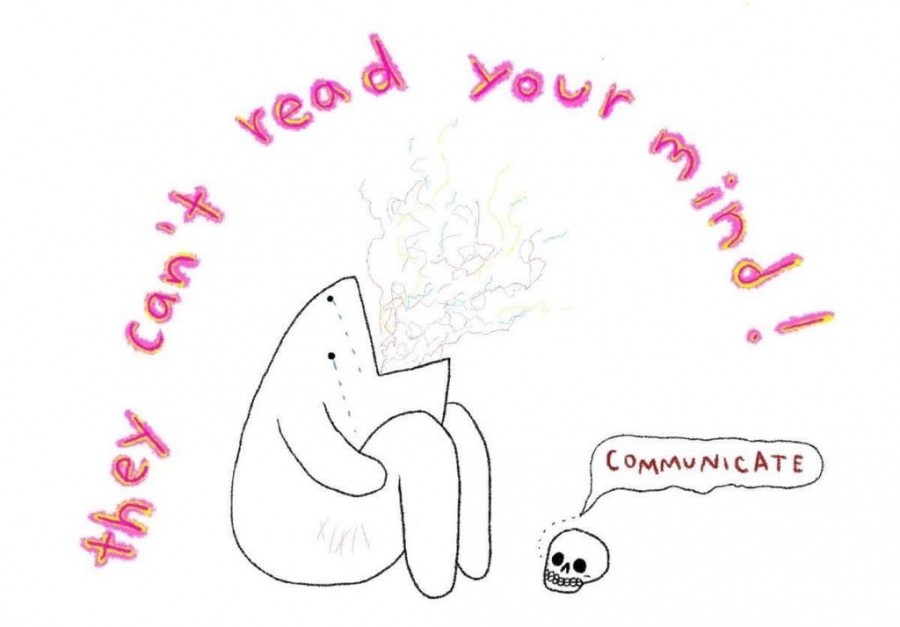 they can't read your mind!
COMMUNICATE